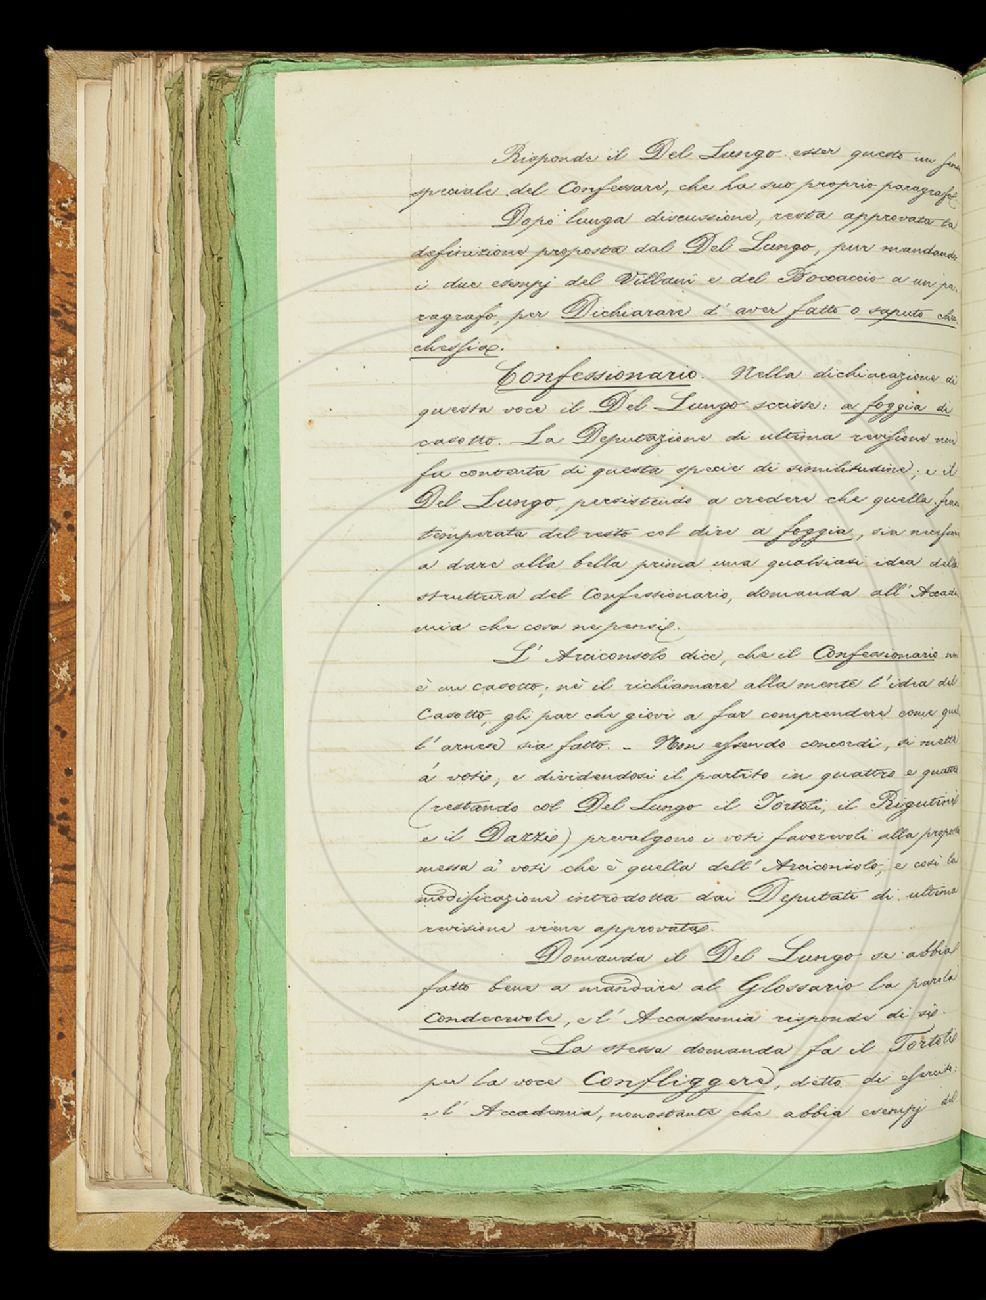 Risponde il Del Lungo esser questo un
speciale del Confessare, che ha suo proprio paragrafo.
Dopo lunga discussione, resta approvata la
definizione proposta dal Del Lungo, pur mandando
i due esempj del Villani e del Boccaccio a un pa-
ragrafo, per Dichiarare d'aver fatto o saputo chec
chessia.
Confessionario. Nella dichiarazione di
questa voce il Del Lungo scrisse: a foggia di
casotto. La Deputazione di ultima revisione non
fu contenta di questa specie di similitudine; e il
Del Lungo, persistendo a credere che quella frase
temperata del resto col dire a foggia, sia necessaria
a dare alla bella prima una qualsiasi idea della
struttura del Confessionario, domanda all'Accade
mia che cosa ne pensi.
L'Arciconsolo dice, che il Confessionario non
è un casotto; nè il richiamare alla mente l'idea del
Casotto, gli par che giovi a far comprendere come quel
l'arnese sia fatto. - Non essendo concordi, si mette
a' voti, e dividendosi il partito in quattro e quattro
(restando col Del Lungo il Tortoli, il Rigutini
e il Dazzi) prevalgono i voti favorevoli alla proposta
messa a' voti che è quella dell'Arciconsolo, e così la
modificazione introdotta dai Deputati di ultima
revisione viene approvata.
Domanda il Del Lungo se abbia
fatto bene a mandare al Glossario la parola
Condecevole, e l'Accademia risponde di sì.
La stessa domanda fa il Tortoli
per la voce Confliggere, detto di eserciti:
e l'Accademia, nonostante che abbia esempj del